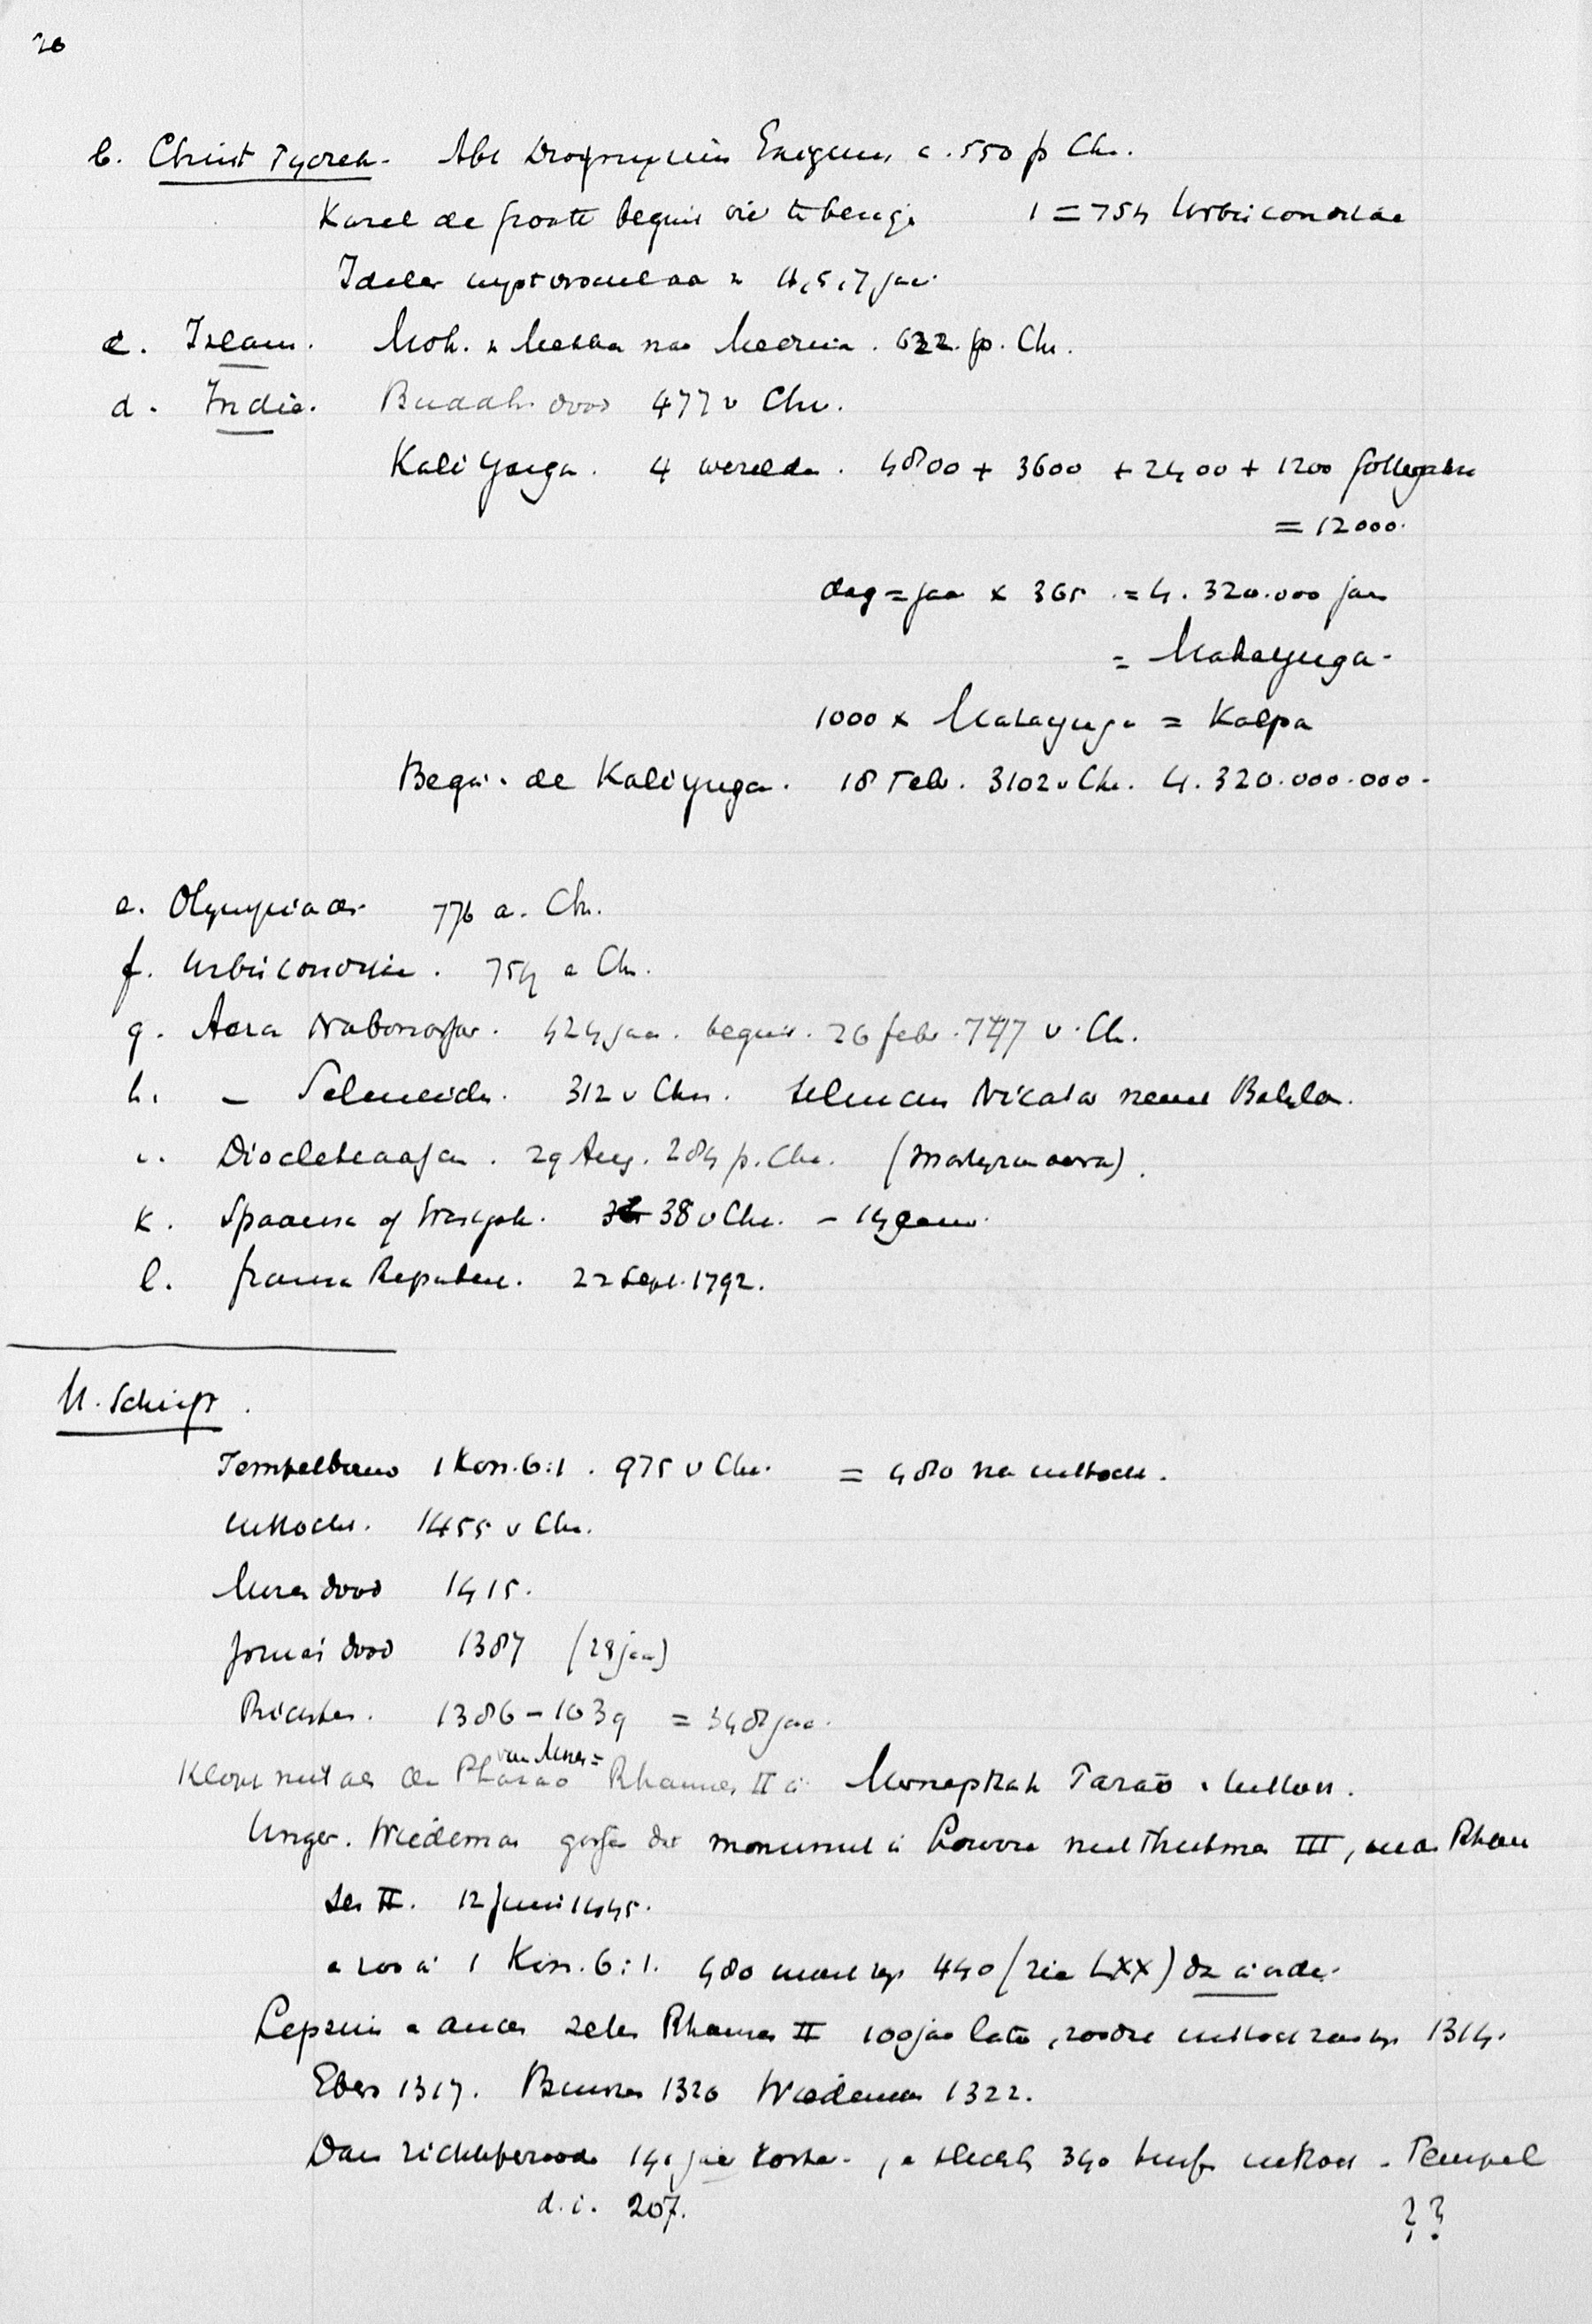 20
b. Christ Tydrek. Abt Dionysius Exiguus c. 550 p Chr.
Karel de Groote begint die te bezige 1 = 754 Urbis conditae
Ideler 4, 5, 7 jaar
c. Islam. Moh. v Mekka naar Medina. 622. p. Chr.
d. Indie. Buddh. dood 477 v Chr.
Kali Yuga. 4 werelde. 4800 + 3600 + 2400 + 1200
= 12000.
dag = jaar x 365 = 4.320.000 jaar
= Mahayuga.
1000 x Mahayuga = Kalpa
Begin de Kaliyuga. 18 Febr. 3102 v Chr. 4.320.000.000.
e. Olympiade. 776 a. Chr.
f. Urbis conditae. 754 a Chr.
g. Aera Nabonassar. 424 jaar. begin. 26 febr. 747 v. Ch.
h. – Seleucide. 312 v Chr. Seleucus Nicator neemt Babylon.
i. Diocletiaa. 29 Aug. 284 p. Chr. (Martyren aera).
k. Spaanse of 38 v Chr. – 14 eeuw.
l. franse Republiek. 22 Sept. 1792.
H. Schrift.
Tempelbouw 1 Kon. 6:1. 975 v Chr. = 480 na uittocht.
Uittocht. 1455 v Chr.
Mozes dood 1415.
Jozua's dood 1387 (28 jaar)
Richter. 1386 – 1039 = 348 jaar.
van Mozes =
Klopt niet als de Pharao Rhamses II is Menephtah Farao v uittocht.
Unger. Wiedeman dat monument in Louvre niet Thutmes III, maar Rham
ses II. 12 Juni 1445.
1 Kon. 6:1. 480 440 (zie LXX)
Lepsius e andere zetten Rhamses II 100 jaar later, zoodat uittocht 1314.
Ebers 1317. 1320 Wiedeman 1322.
Dan richterperiode 141 jaar korter, e slechts 340 uittocht - Tempel
d. i. 207. ??